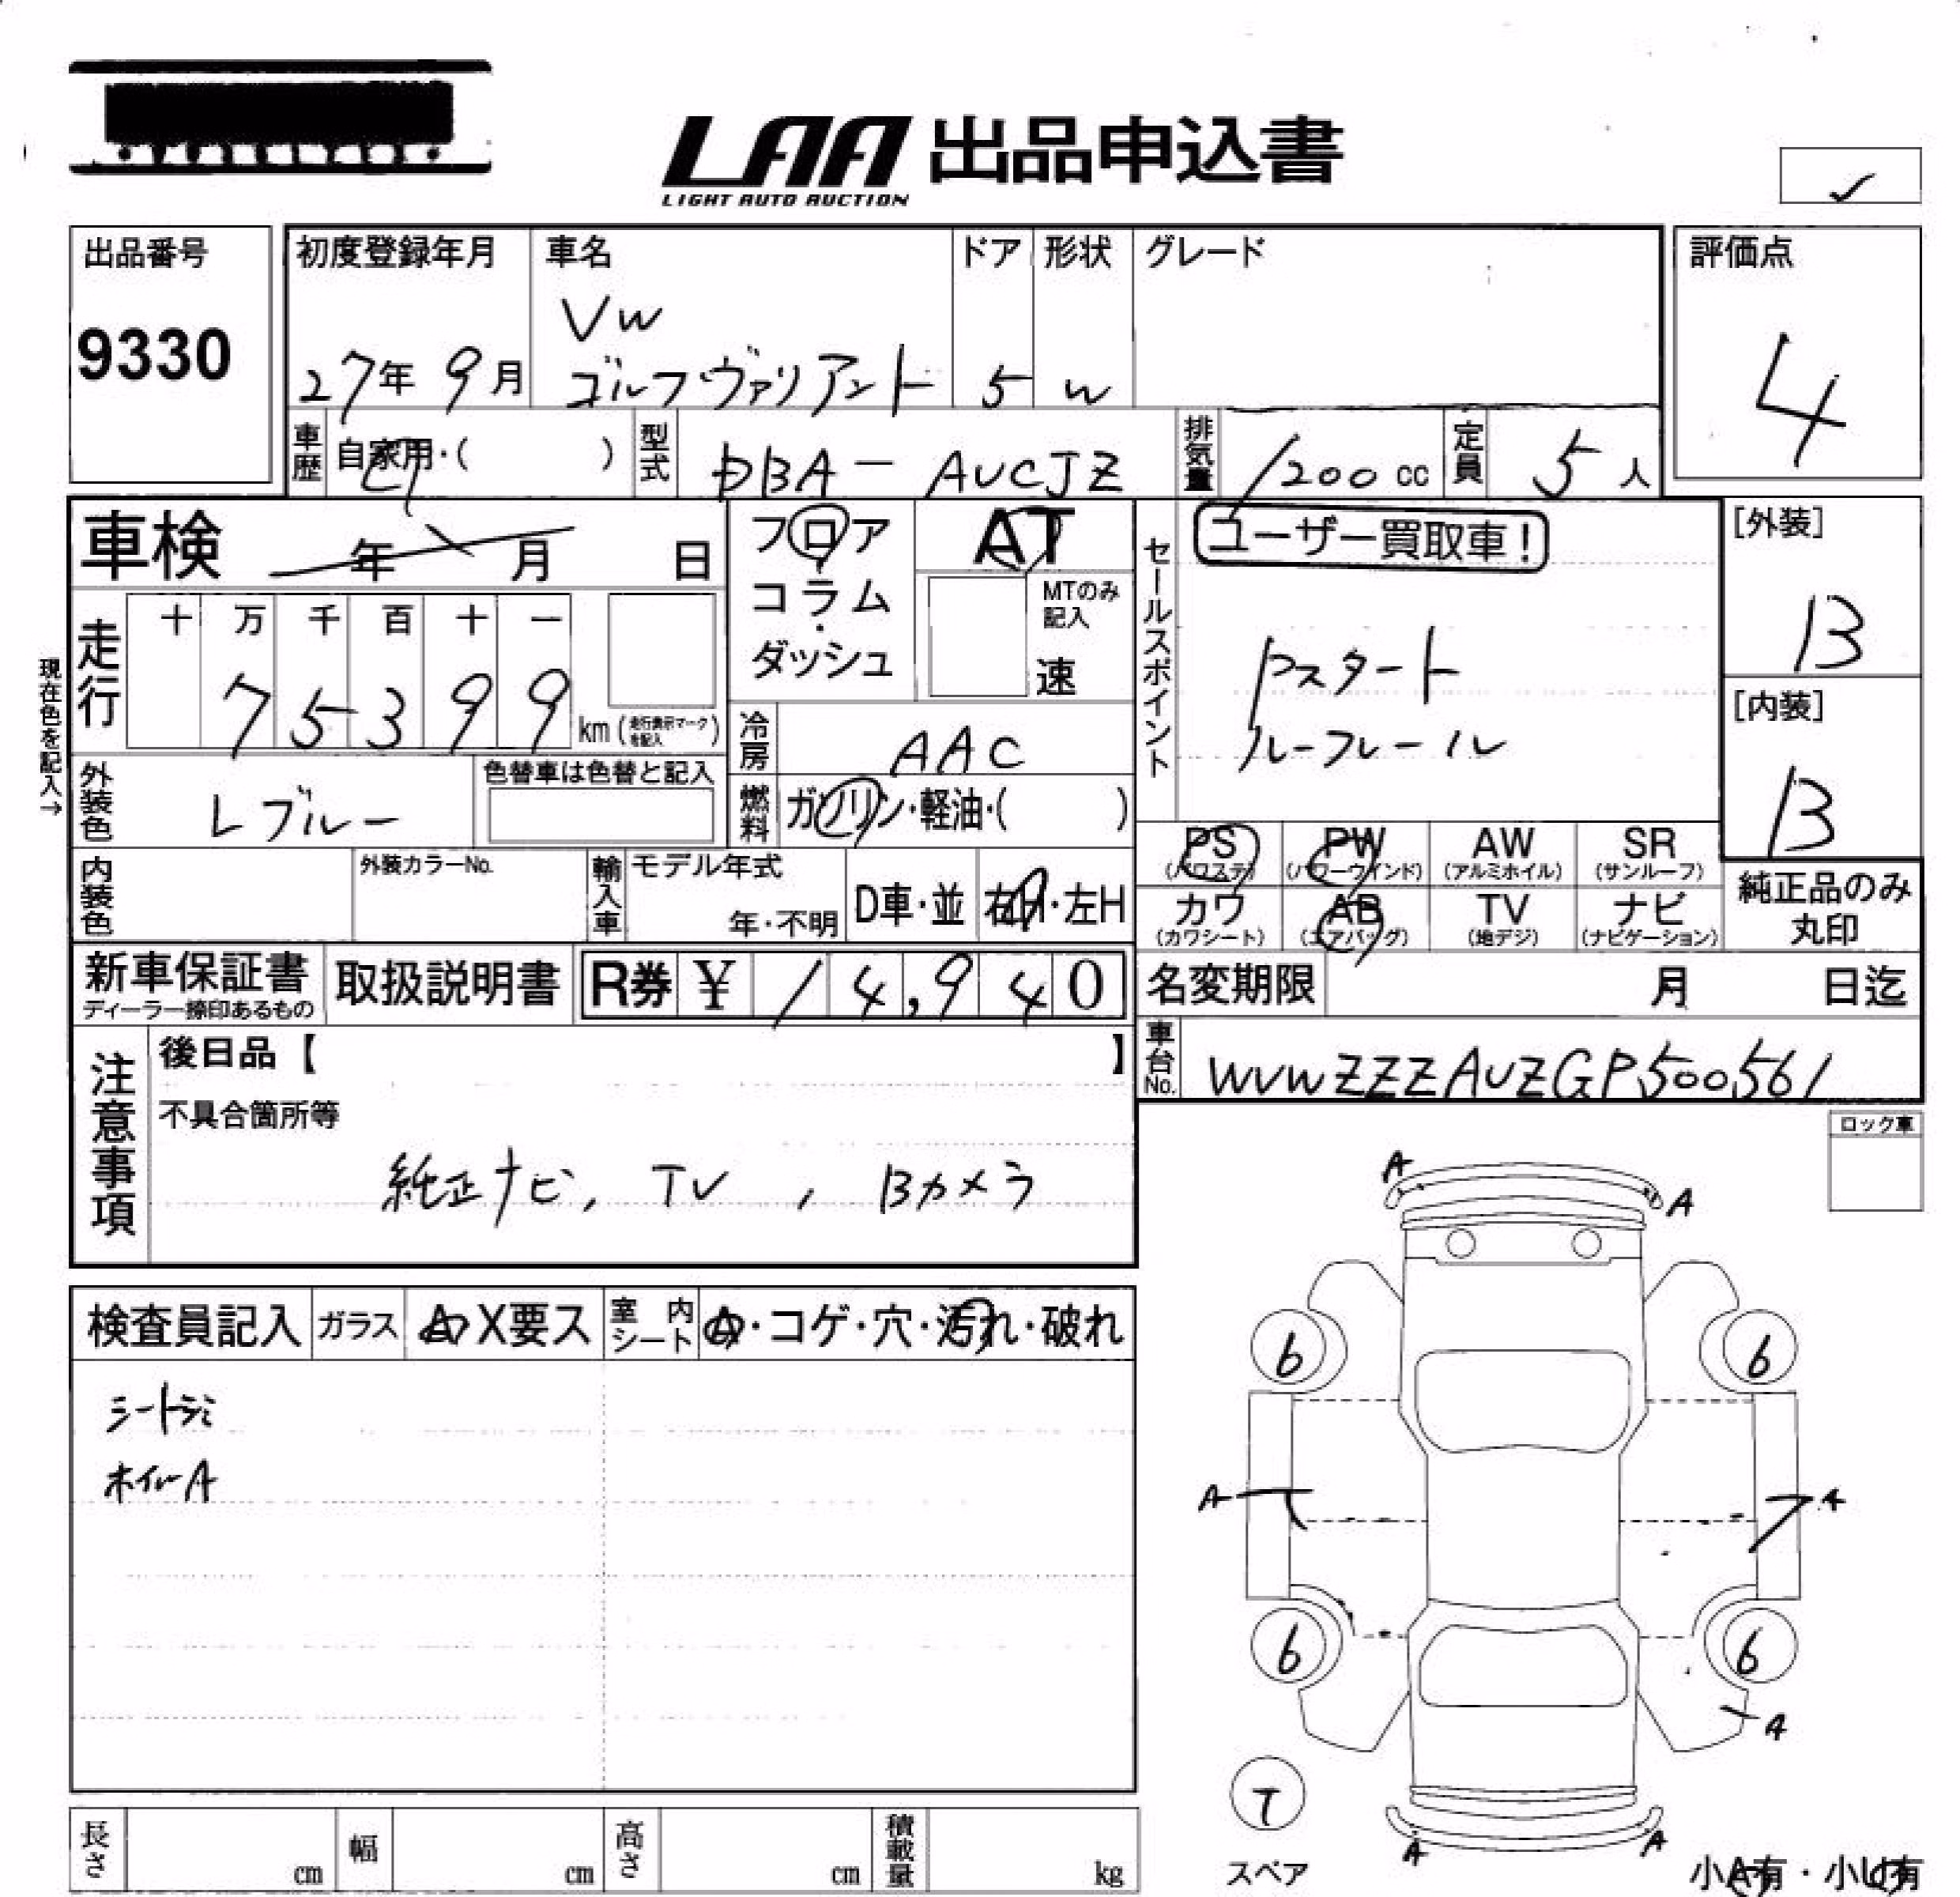 LAA 出品申込書
LIGHT AUTO AUCTION
✓
出品番号
9330
初度登録年月
27年 9月
車名
VW
ゴルフヴァリアント
ドア
5
形状
W
グレード
評価点
4
車歴
自家用・( )
型式
DBA-AUCJZ
排気量
1200 cc
定員
5人
車検
年 月 日
フロア
コラム・
ダッシュ
AT
MTのみ
記入
速
セールスポイント
ユーザー買取車!
Pスタート
ルーフレール
[外装]
B
[内装]
B
現在色を記入→
走行
十 万 千 百 十 一
7 5 3 9 9
km (走行表示マークを記入)
冷房
AAC
外装色
Lブルー
色替車は色替と記入
燃料
ガソリン・軽油・( )
PS
(パワステ)
PW
(パワーウインド)
AW
(アルミホイル)
SR
(サンルーフ)
カワ
(カワシート)
AB
(エアバッグ)
TV
(地デジ)
ナビ
(ナビゲーション)
純正品のみ
丸印
内装色
外装カラーNo.
輸入車
モデル年式
年・不明
D車・並
右H・左H
新車保証書
ディーラー捺印あるもの
取扱説明書
R券 ¥ 14,940
名変期限
月 日迄
車台No.
WVWZZZAUZGP500561
注意事項
後日品【 】
不具合箇所等
純正ナビ, TV , Bカメラ
ロック車
検査員記入
ガラス
A X要ス
室内シート
A・コゲ・穴・汚れ・破れ
ホイルA
A
A
6
6
A
A
6
6
A
T
スペア
A
A
小A有・小U有
長さ
cm
幅
cm
高さ
cm
積載量
kg